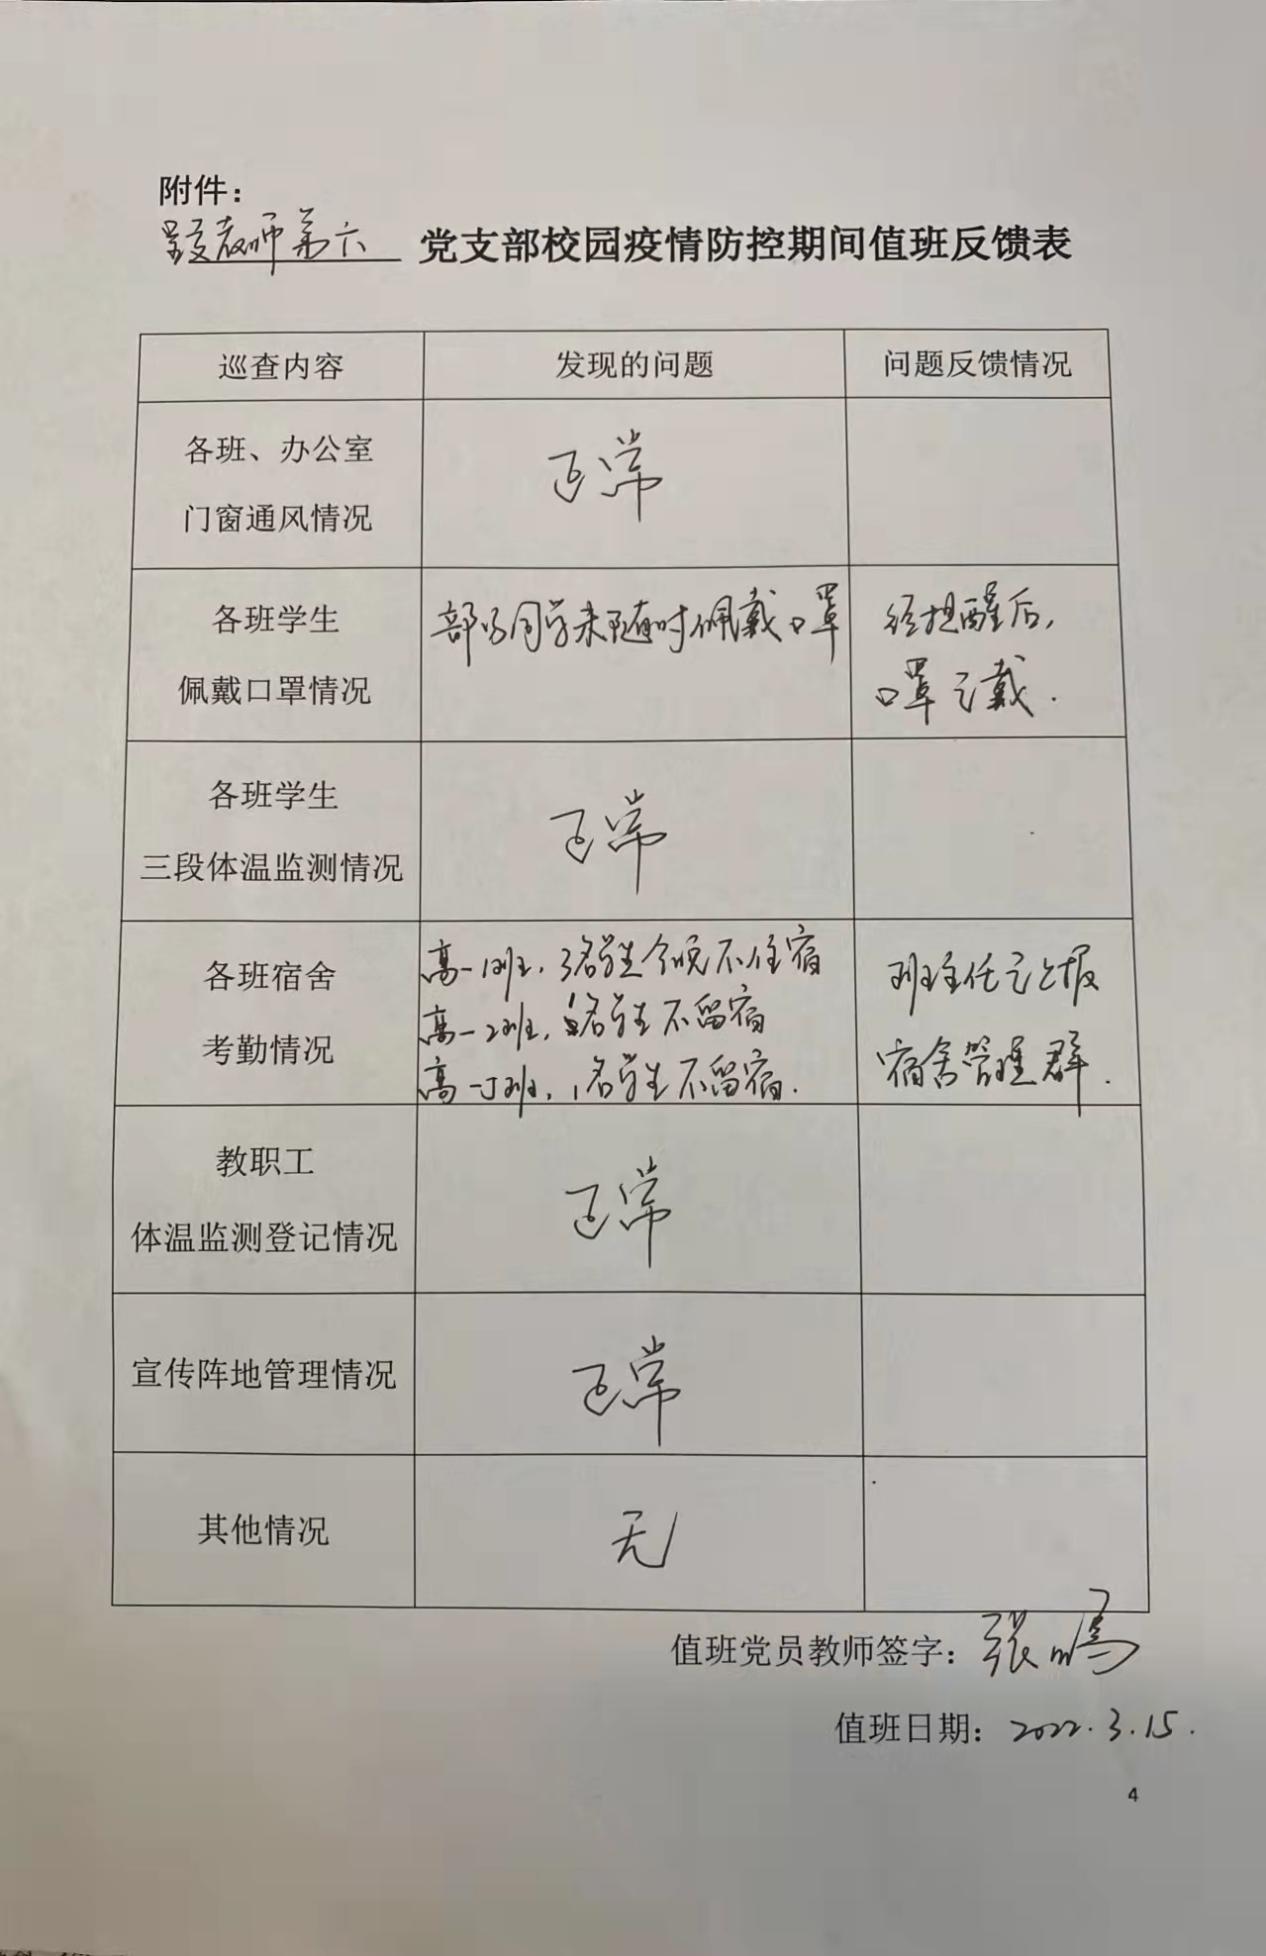 附件：
教师第六 党支部校园疫情防控期间值班反馈表
巡查内容 发现的问题 问题反馈情况
各班、办公室
门窗通风情况
正常
各班学生
佩戴口罩情况
部分同学未随时佩戴口罩
经提醒后，
口罩已戴.
各班学生
三段体温监测情况
正常
各班宿舍
考勤情况
高一1班，3名学生今晚不住宿
高一2班，名学生不留宿
高一5班，1名学生不留宿.
班主任已上报
宿舍管理群.
教职工
体温监测登记情况
正常
宣传阵地管理情况
正常
其他情况
无
值班党员教师签字：张鸣
值班日期：2022.3.15.
4